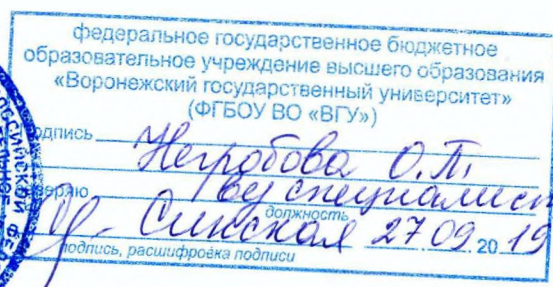 федеральное государственное бюджетное
образовательное учреждение высшего образования
«Воронежский государственный университет»
(ФГБОУ ВО «ВГУ»)
одпись Негробова О.П.
вед специалист
веряю
должность
Синская 27 09 20 19
подпись, расшифровка подписи